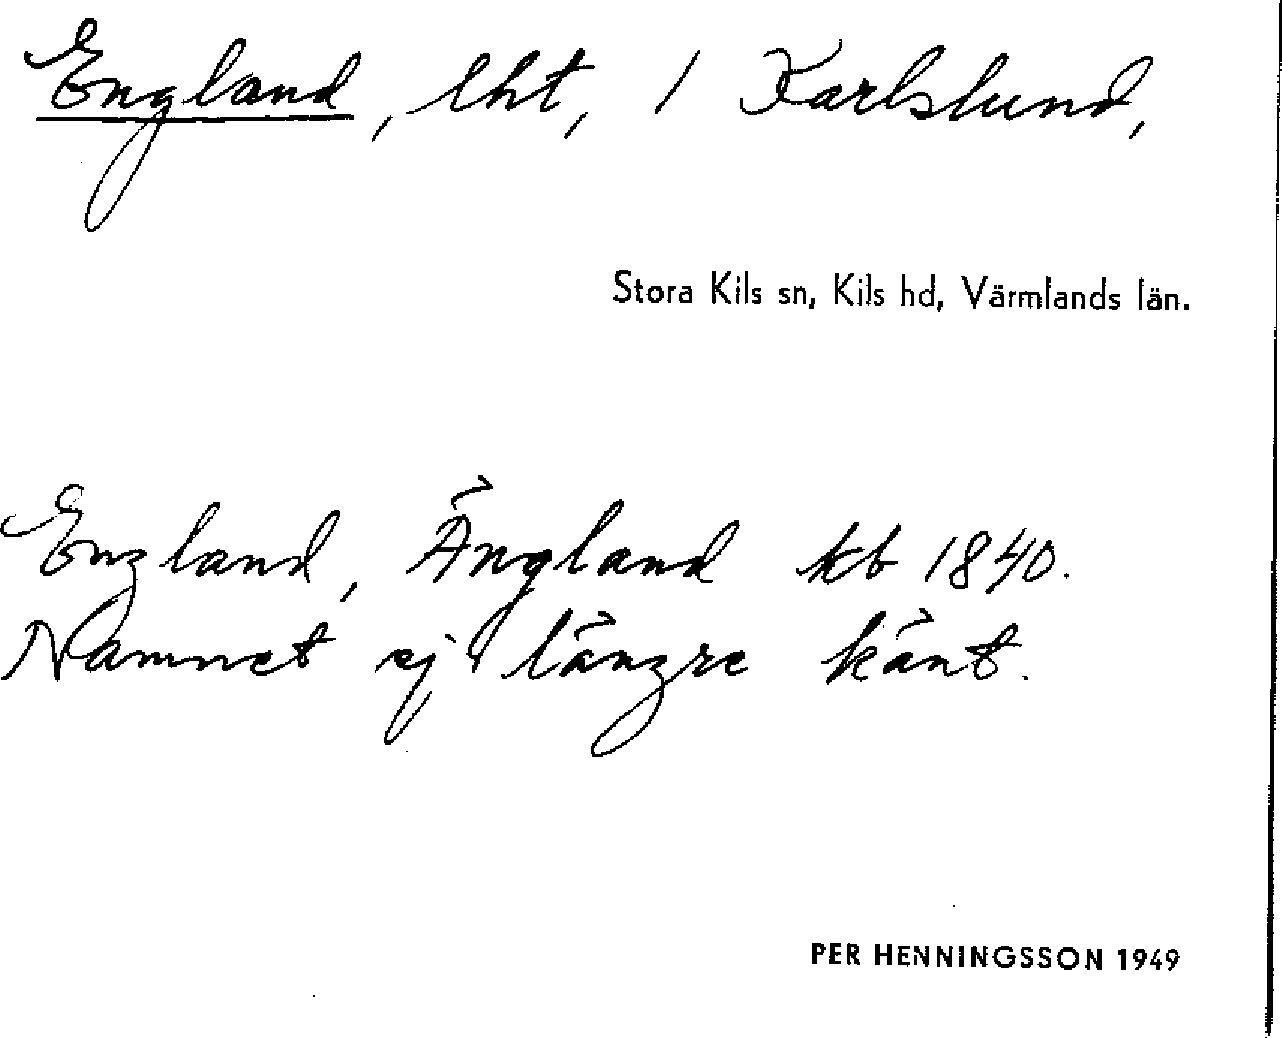 England, lht, / Karlslund,
Stora Kils sn, Kils hd, Värmlands län.
England, Ängland kb 1840.
Namnet ej längre känt.
PER HENNINGSSON 1949